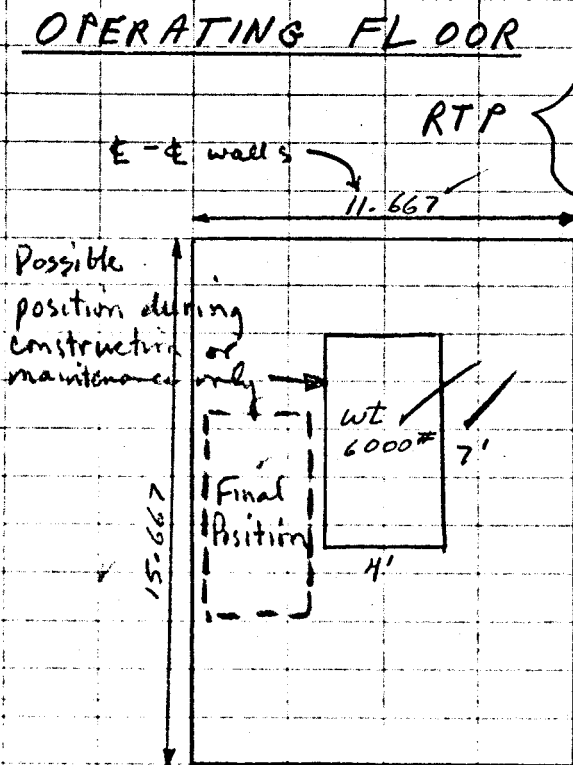 OPERATING FLOOR
RTP
℄-℄ walls
11.667
Possible
position during
construction or
maintenance only
wt
6000#
7'
Final
Position
4'
15.667